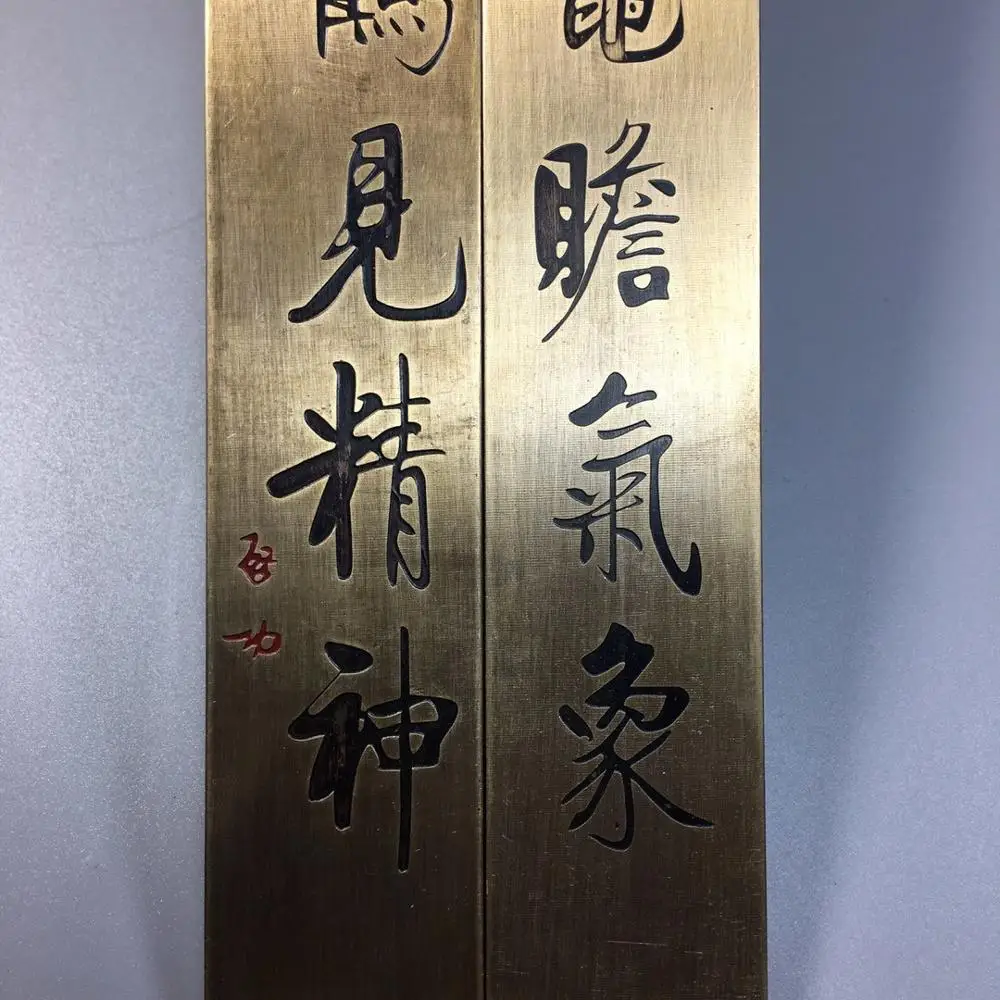 瞻氣象
見精神
启功